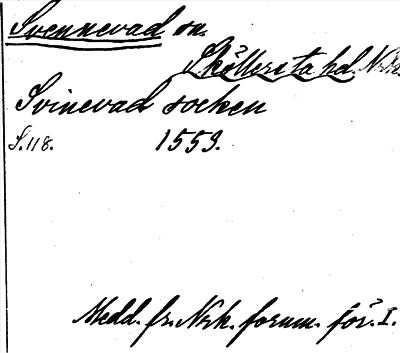 Svennevad sn.
Sköllersta hd. Nrke.
Svinevad socken
S.118. 1559.
Medd. fr. Nrk. fornm. för. I.